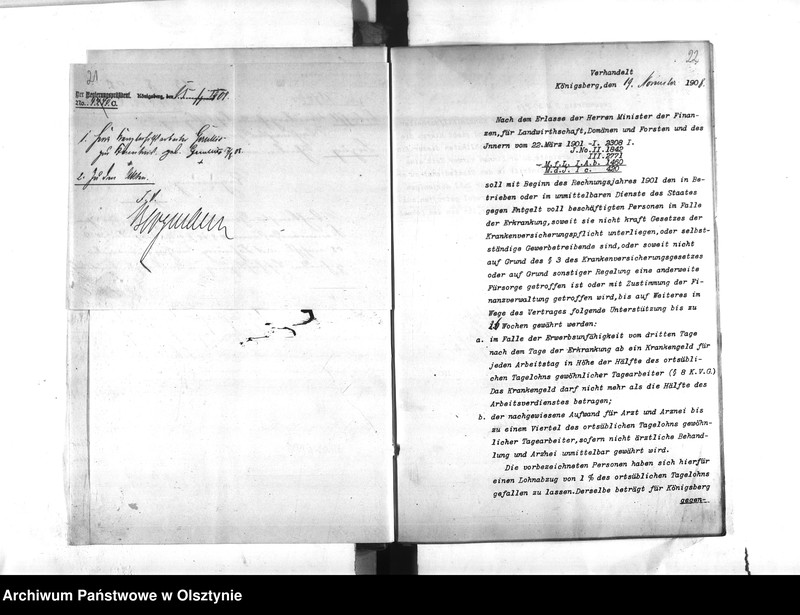 21
Der Regierungspräsident.
Königsberg, den
1.
2. Zu den Akten.
22
Verhandelt
Königsberg, den 19. November 190
Nach dem Erlasse der Herren Minister der Finan-
zen, für Landwirthschaft, Domänen und Forsten und des
Jnnern vom 22. März 1901 -I. 2308 I.
J.No.II.1842
III.2771
M.f.L. I.A.b. 1460
M.d.J. I c. 420
soll mit Beginn des Rechnungsjahres 1901 den in Be-
trieben oder im unmittelbaren Dienste des Staates
gegen Entgelt voll beschäftigten Personen im Falle
der Erkrankung, soweit sie nicht kraft Gesetzes der
Krankenversicherungspflicht unterliegen, oder selbst-
ständige Gewerbetreibende sind, oder soweit nicht
auf Grund des § 3 des Krankenversicherungsgesetzes
oder auf Grund sonstiger Regelung eine anderweite
Fürsorge getroffen ist oder mit Zustimmung der Fi-
nanzverwaltung getroffen wird, bis auf Weiteres im
Wege des Vertrages folgende Unterstützung bis zu
26 Wochen gewährt werden:
a. im Falle der Erwerbsunfähigkeit vom dritten Tage
nach dem Tage der Erkrankung ab ein Krankengeld für
jeden Arbeitstag in Höhe der Hälfte des ortsübli-
chen Tagelohns gewöhnlicher Tagearbeiter (§ 8 K.V.G.)
Das Krankengeld darf nicht mehr als die Hälfte des
Arbeitsverdienstes betragen;
b. der nachgewiesene Aufwand für Arzt und Arznei bis
zu einem Viertel des ortsüblichen Tagelohns gewöhn-
licher Tagearbeiter, sofern nicht ärztliche Behand-
lung und Arznei unmittelbar gewährt wird.
Die vorbezeichneten Personen haben sich hierfür
einen Lohnabzug von 1 % des ortsüblichen Tagelohns
gefallen zu lassen. Derselbe beträgt für Königsberg
gegen-
Archiwum Państwowe w Olsztynie